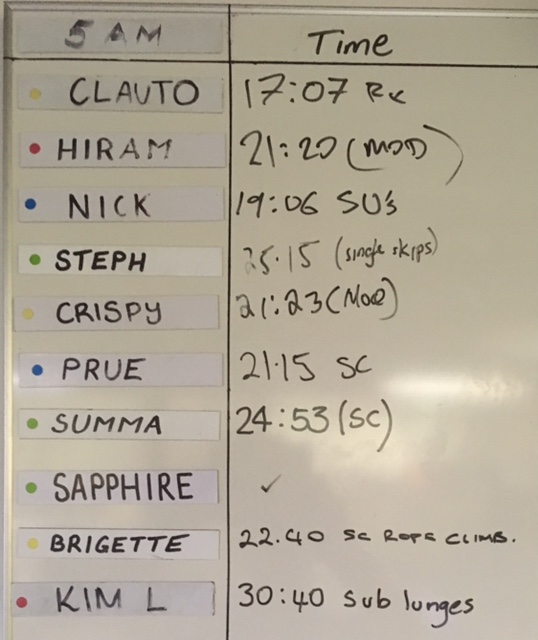 5 AM Time
CLAUTO 17:07 Rx
HIRAM 21:20 (MOD)
NICK 19:06 SU's
STEPH 25.15 (single skips)
CRISPY 21:23 (Mod)
PRUE 21.15 SC
SUMMA 24:53 (SC)
SAPPHIRE ✓
BRIGETTE 22.40 SC ROPE CLIMB.
KIM L 30:40 Sub lunges